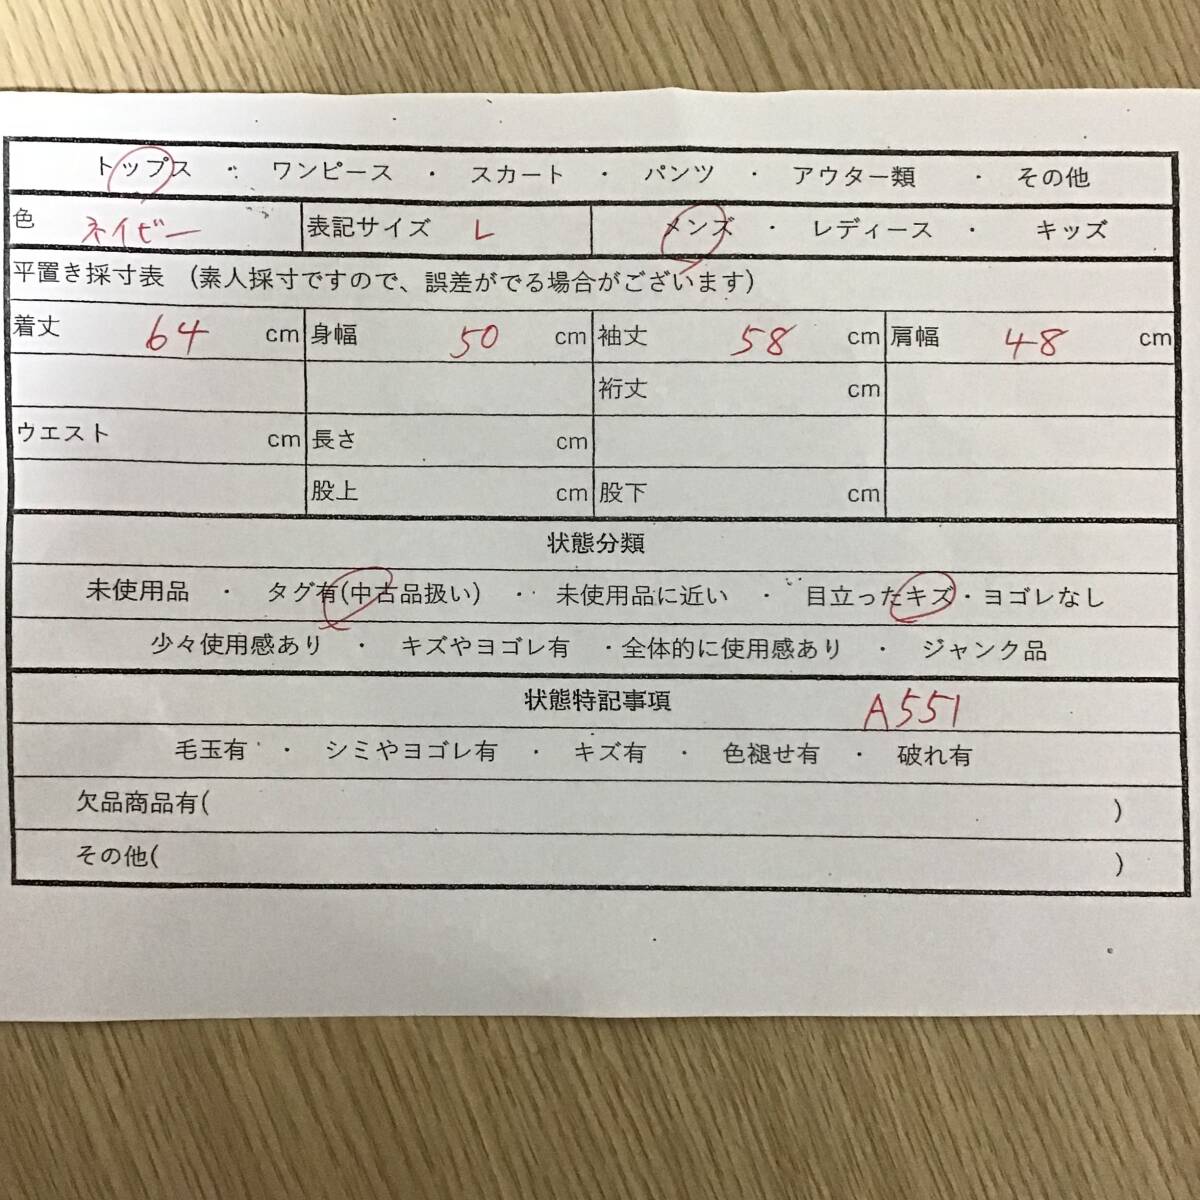 トップス ・ ワンピース ・ スカート ・ パンツ ・ アウター類 ・ その他
色 ネイビー 表記サイズ L メンズ ・ レディース ・ キッズ
平置き採寸表 (素人採寸ですので、誤差がでる場合がございます)
着丈 64 cm 身幅 50 cm 袖丈 58 cm 肩幅 48 cm
裄丈 cm
ウエスト cm 長さ cm
股上 cm 股下 cm
状態分類
未使用品 ・ タグ有(中古品扱い) ・ 未使用品に近い ・ 目立ったキズ・ヨゴレなし
少々使用感あり ・ キズやヨゴレ有 ・全体的に使用感あり ・ ジャンク品
状態特記事項 A551
毛玉有 ・ シミやヨゴレ有 ・ キズ有 ・ 色褪せ有 ・ 破れ有
欠品商品有( )
その他( )